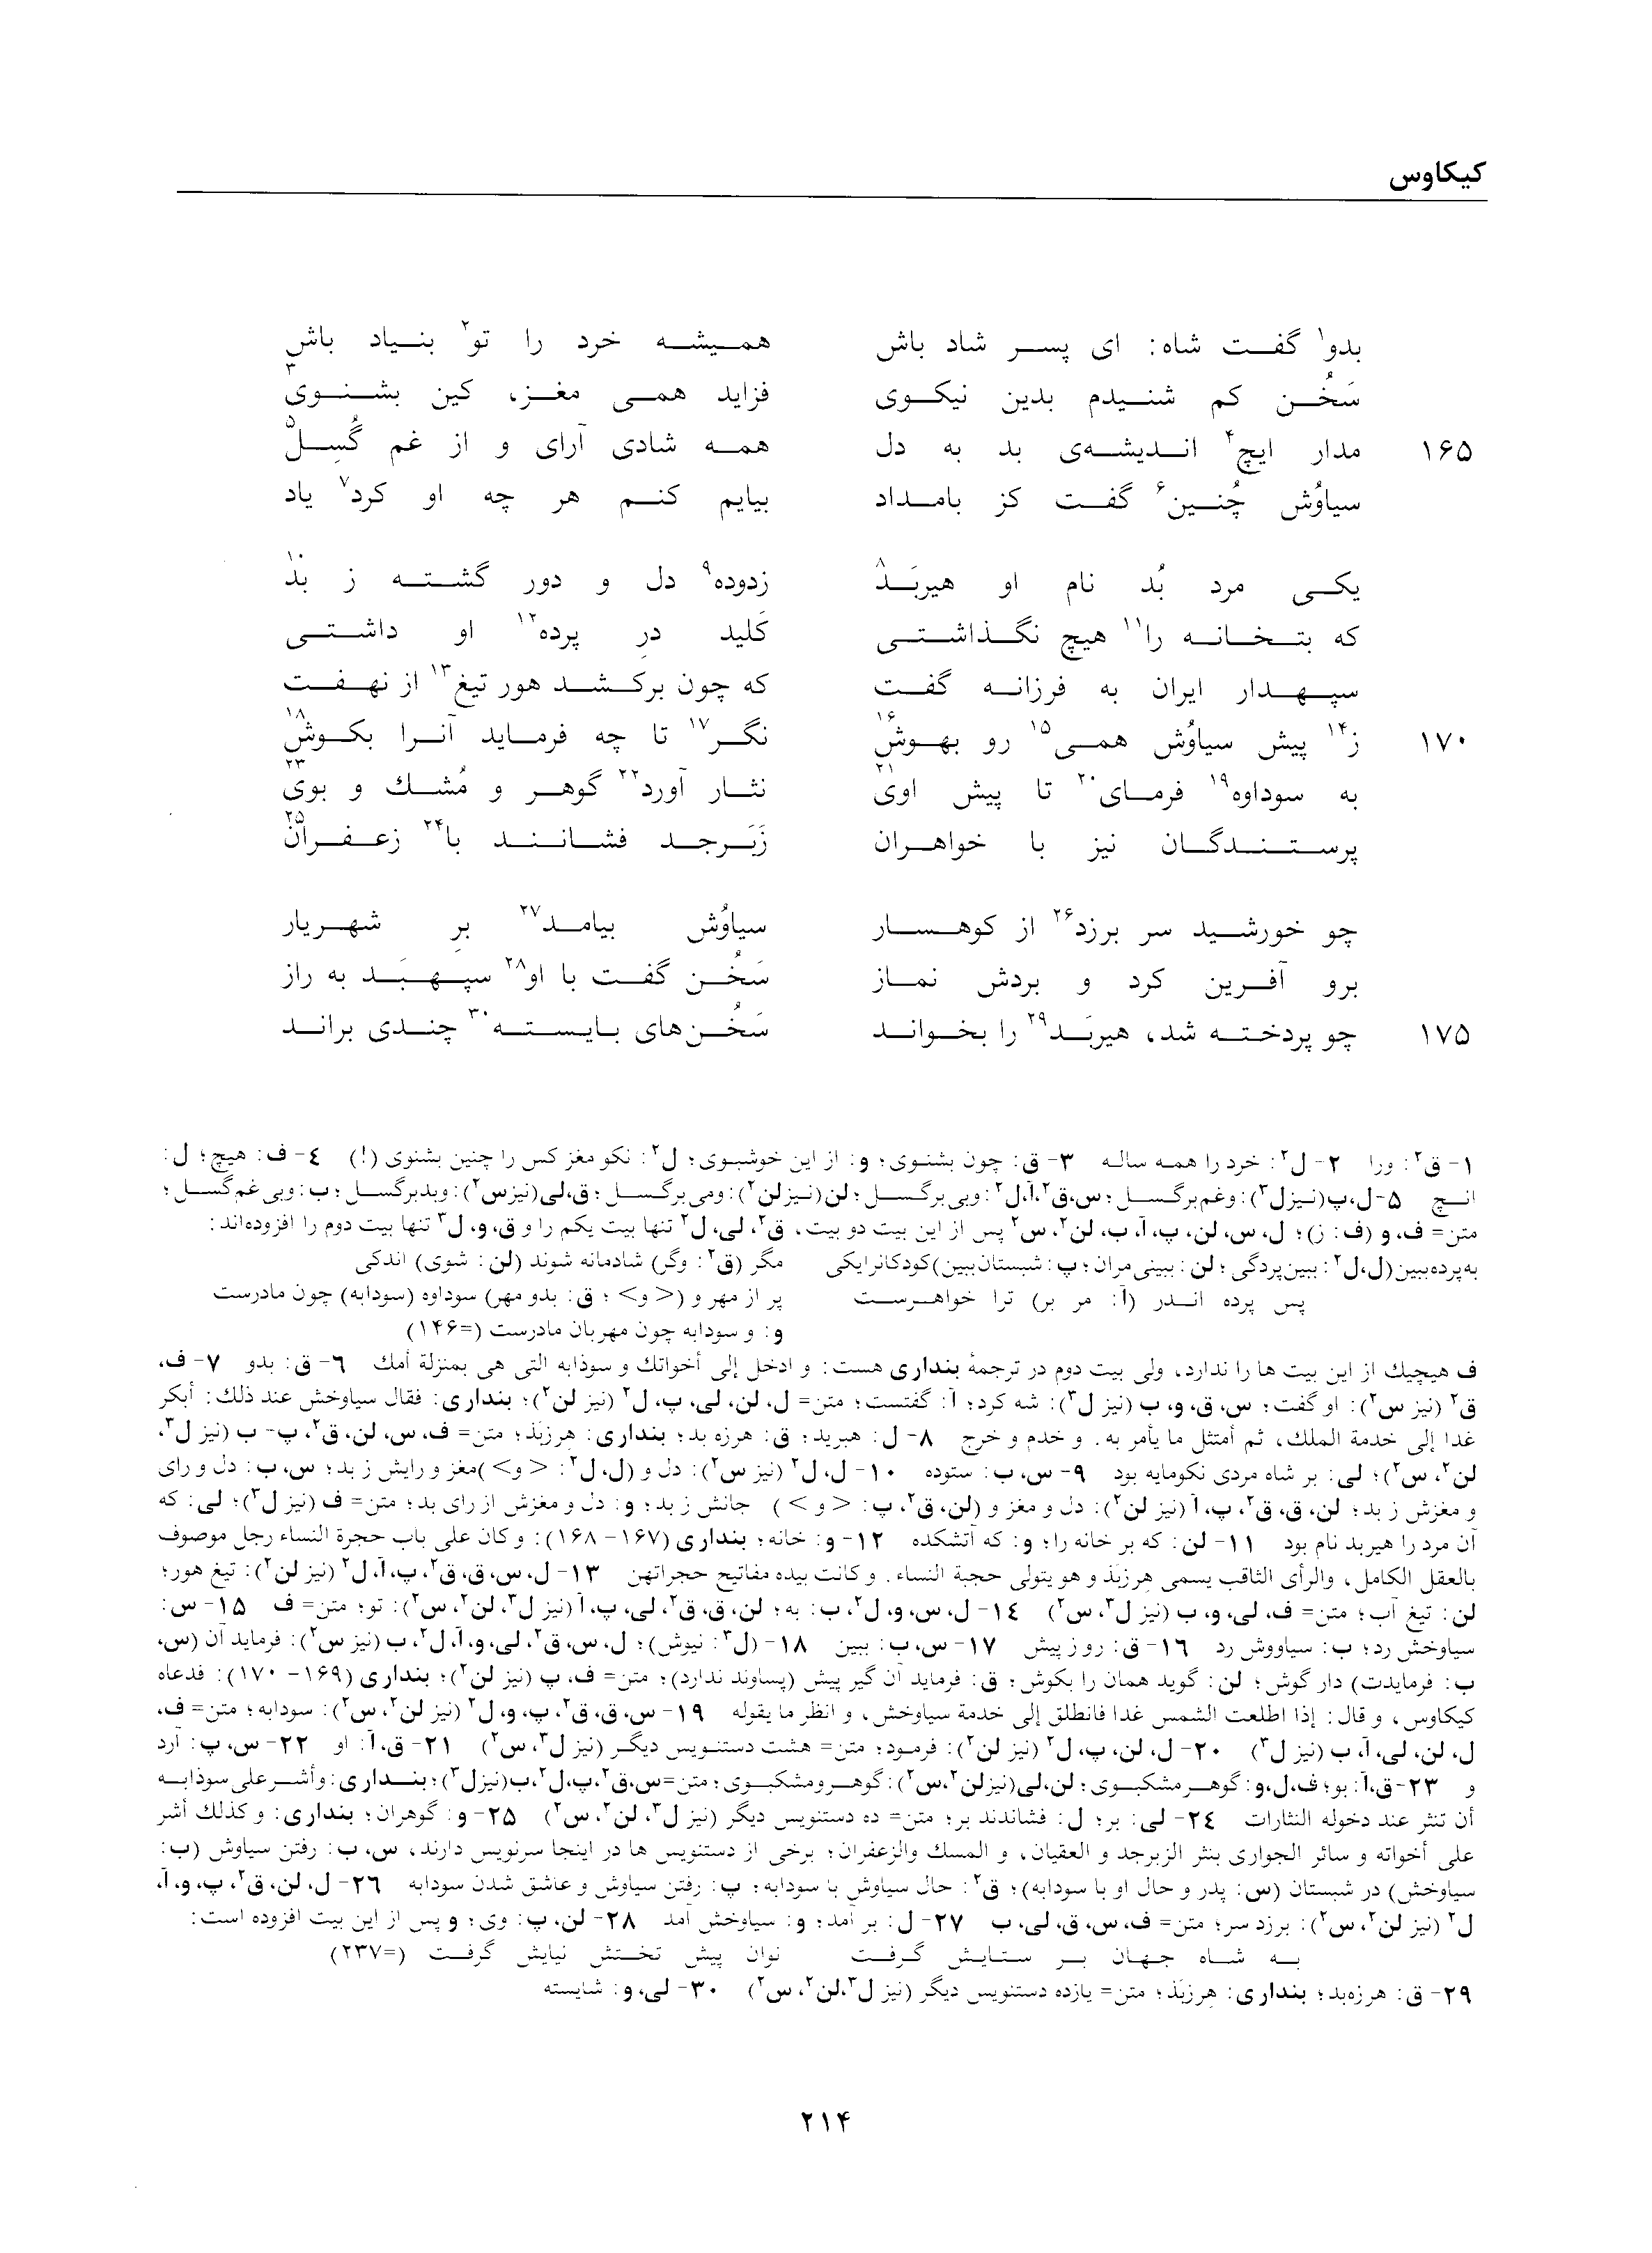 کیکاوس
بدو۱ گفت شاه: ای پسر شاد باش همیشه خرد را تو۲ بنیاد باش
سَخُن کم شنیدم بدین نیکوی فزاید همی مغز، کین بشنوی۳
۱۶۵ مدار ایچ۴ اندیشه‌ی بد به دل همه شادی آرای و از غم گُسِل۵
سیاوُش چُنین۶ گفت کز بامداد بیایم کنم هر چه او کرد۷ یاد
یکی مرد بُد نام او هیربَد۸ زدوده۹ دل و دور گشته ز بد۱۰
که بتخانه را۱۱ هیچ نگذاشتی کَلید درِ پرده۱۲ او داشتی
سپهدار ایران به فرزانه گفت که چون برکشد هور تیغ۱۳ از نهفت
۱۷۰ ز۱۴ پیش سیاوُش همی۱۵ رو بهوش۱۶ نگر۱۷ تا چه فرماید آنرا بکوش۱۸
به سوداوه۱۹ فرمای۲۰ تا پیش اوی۲۱ نثار آورد۲۲ گوهر و مُشک و بوی۲۳
پرستندگان نیز با خواهران زَبَرجد فشانند با۲۴ زعفران۲۵
چو خورشید سر برزد۲۶ از کوهسار سیاوُش بیامد۲۷ برِ شهریار
برو آفرین کرد و بردش نماز سَخُن گفت با او۲۸ سپهبَد به راز
۱۷۵ چو پردخته شد، هیربَد۲۹ را بخواند سَخُن‌های بایسته۳۰ چندی براند
۱- ق۲: ورا ۲- ل۲: خرد را همه ساله ۳- ق: چون بشنوی؛ و: از این خوشبوی؛ ل۲: نکو مغز کس را چنین بشنوی (!) ٤- ف: هیچ؛ ل:
انچ ۵- ل، پ(نیزل۳): وغم برگسل؛ س، ق۲، آ، ل۲: وبی برگسل؛ لن(نیزلن۲): ومی برگسل؛ ق، لی(نیزس۲): وبدبرگسل؛ ب: وبی غم گسل؛
متن= ف، و (ف: ز)؛ ل، س، لن، پ، آ، ب، لن۲، س۲ پس از این بیت دو بیت، ق۲، لی، ل۲ تنها بیت یکم را و ق، و، ل۳ تنها بیت دوم را افزوده‌اند:
به پرده ببین(ل، ل۲: ببین پردگی؛ لن: ببینی مران؛ پ: شبستان ببین)کودکانرایکی مگر (ق۲: وگر) شادمانه شوند (لن: شوی) اندکی
پس پرده اندر (آ: مر بر) ترا خواهرست پر از مهر و (< و> ؛ ق: بدو مهر) سوداوه (سودابه) چون مادرست
و: و سودابه چون مهربان مادرست (=۱۴۶)
ف هیچیک از این بیت ها را ندارد، ولی بیت دوم در ترجمهٔ بنداری هست: و ادخل إلی أخواتك و سوذابه التی هی بمنزلة أمك ٦- ق: بدو ۷- ف،
ق۲ (نیز س۲): او گفت؛ س، ق، و، ب (نیز ل۳): شه کرد؛ آ: گفتست؛ متن= ل، لن، لی، پ، ل۲ (نیز لن۲)؛ بنداری: فقال سیاوخش عند ذلك: أبکر
غدا إلی خدمة الملك، ثم أمتثل ما یأمر به. و خدم و خرج ۸- ل: هبرید؛ ق: هرزه بد؛ بنداری: هرزبَذ؛ متن= ف، س، لن، ق۲، پ- ب (نیز ل۳،
لن۲، س۲)؛ لی: بر شاه مردی نکومایه بود ۹- س، ب: ستوده ۱۰- ل، ل۲ (نیز س۲): دل و (ل، ل۲: < و>)مغز و رایش ز بد؛ س، ب: دل و رای
و مغزش ز بد؛ لن، ق، ق۲، پ، آ (نیز لن۲): دل و مغز و (لن، ق۲، پ: < و >) جانش ز بد؛ و: دل و مغزش از رای بد؛ متن= ف (نیز ل۳)؛ لی: که
آن مرد را هیربد نام بود ۱۱- لن: که بر خانه را؛ و: که آتشکده ۱۲- و: خانه؛ بنداری (۱۶۷- ۱۶۸): و کان علی باب حجرة النساء رجل موصوف
بالعقل الکامل، والرأی الثاقب یسمی هِرزبَذ و هو یتولی حجبة النساء. و کانت بیده مفاتیح حجراتهن ۱۳- ل، س، ق، ق۲، پ، آ، ل۲ (نیز لن۲): تیغ هور؛
لن: تیغ آب؛ متن= ف، لی، و، ب (نیز ل۳، س۲) ۱٤- ل، س، و، ل۲، ب: به؛ لن، ق، ق۲، لی، پ، آ (نیز ل۳، لن۲، س۲): تو؛ متن= ف ۱۵- س:
سیاوخش رد؛ ب: سیاووش رد ۱٦- ق: روز پیش ۱۷- س، ب: ببین ۱۸- (ل۳: نیوش)؛ ل، س، ق۲، لی، و، آ، ل۲، ب (نیز س۲): فرماید آن (س،
ب: فرمایدت) دار گوش؛ لن: گوید همان را بکوش؛ ق: فرماید آن گیر پیش (پساوند ندارد)؛ متن= ف، پ (نیز لن۲)؛ بنداری (۱۶۹- ۱۷۰): فدعاه
کیکاوس، و قال: إذا اطلعت الشمس غدا فانطلق إلی خدمة سیاوخش، و انظر ما یقوله ۱۹- س، ق، ق۲، پ، و، ل۲ (نیز لن۲، س۲): سودابه؛ متن= ف،
ل، لن، لی، آ، ب (نیز ل۳) ۲۰- ل، لن، پ، ل۲ (نیز لن۲): فرمود؛ متن= هشت دستنویس دیگر (نیز ل۳، س۲) ۲۱- ق، آ: او ۲۲- س، پ: آرد
و ۲۳- ق، آ: بو؛ ف، ل، و: گوهر مشکبوی؛ لن، لی(نیزلن۲، س۲): گوهر و مشکبوی؛ متن=س، ق۲، پ، ل۲، ب(نیزل۳)؛ بنداری: وأشر علی سوذابه
أن تنثر عند دخوله النثارات ۲٤- لی: بر؛ ل: فشاندند بر؛ متن= ده دستنویس دیگر (نیز ل۳، لن۲، س۲) ۲۵- و: گوهران؛ بنداری: و کذلك أشر
علی أخواته و سائر الجواری بنثر الزبرجد و العقیان، و المسك والزعفران؛ برخی از دستنویس ها در اینجا سرنویس دارند، س، ب: رفتن سیاوش (ب:
سیاوخش) در شبستان (س: پدر و حال او با سودابه)؛ ق۲: حال سیاوش با سودابه؛ پ: رفتن سیاوش و عاشق شدن سودابه ۲٦- ل، لن، ق۲، پ، و، آ،
ل۲ (نیز لن۲، س۲): برزد سر؛ متن= ف، س، ق، لی، ب ۲۷- ل: بر آمد؛ و: سیاوخش آمد ۲۸- لن، پ: وی؛ و پس از این بیت افزوده است:
به شاه جهان بر ستایش گرفت نوان پیش تختش نیایش گرفت (=۲۳۷)
۲۹- ق: هرزه‌بد؛ بنداری: هِرزبَذ؛ متن= یازده دستنویس دیگر (نیز ل۳، لن۲، س۲) ۳۰- لی، و: شایسته
۲۱۴